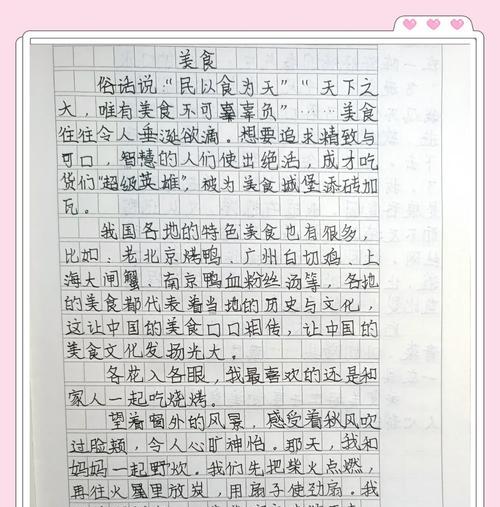 美食
俗话说“民以食为天”“天下之
大,唯有美食不可辜辜负”……美食
往往令人垂涎欲滴。想要追求精致与
可口,智慧的人们使出绝活,成才吃
货们“超级英雄”,被为美食城堡添砖加
瓦。
我国各地的特色美食也有很多,
比如、老北京烤鸭、广州白切鸡,上
海大闸蟹、南京鸭血粉丝汤等,各地
的美食都代表着当地的历史与文化,
这让中国的美食口口相传,让中国的
美食文化发扬光大。
各花入各眼,我最喜欢的还是和
家人一起吃烧烤。
望着窗外的风景,感受着秋风吹
过脸颊,令人心旷神怡。那天,我和
妈妈一起野炊。我们先把柴火点燃,
再往火里放炭,用扇子使劲扇。我